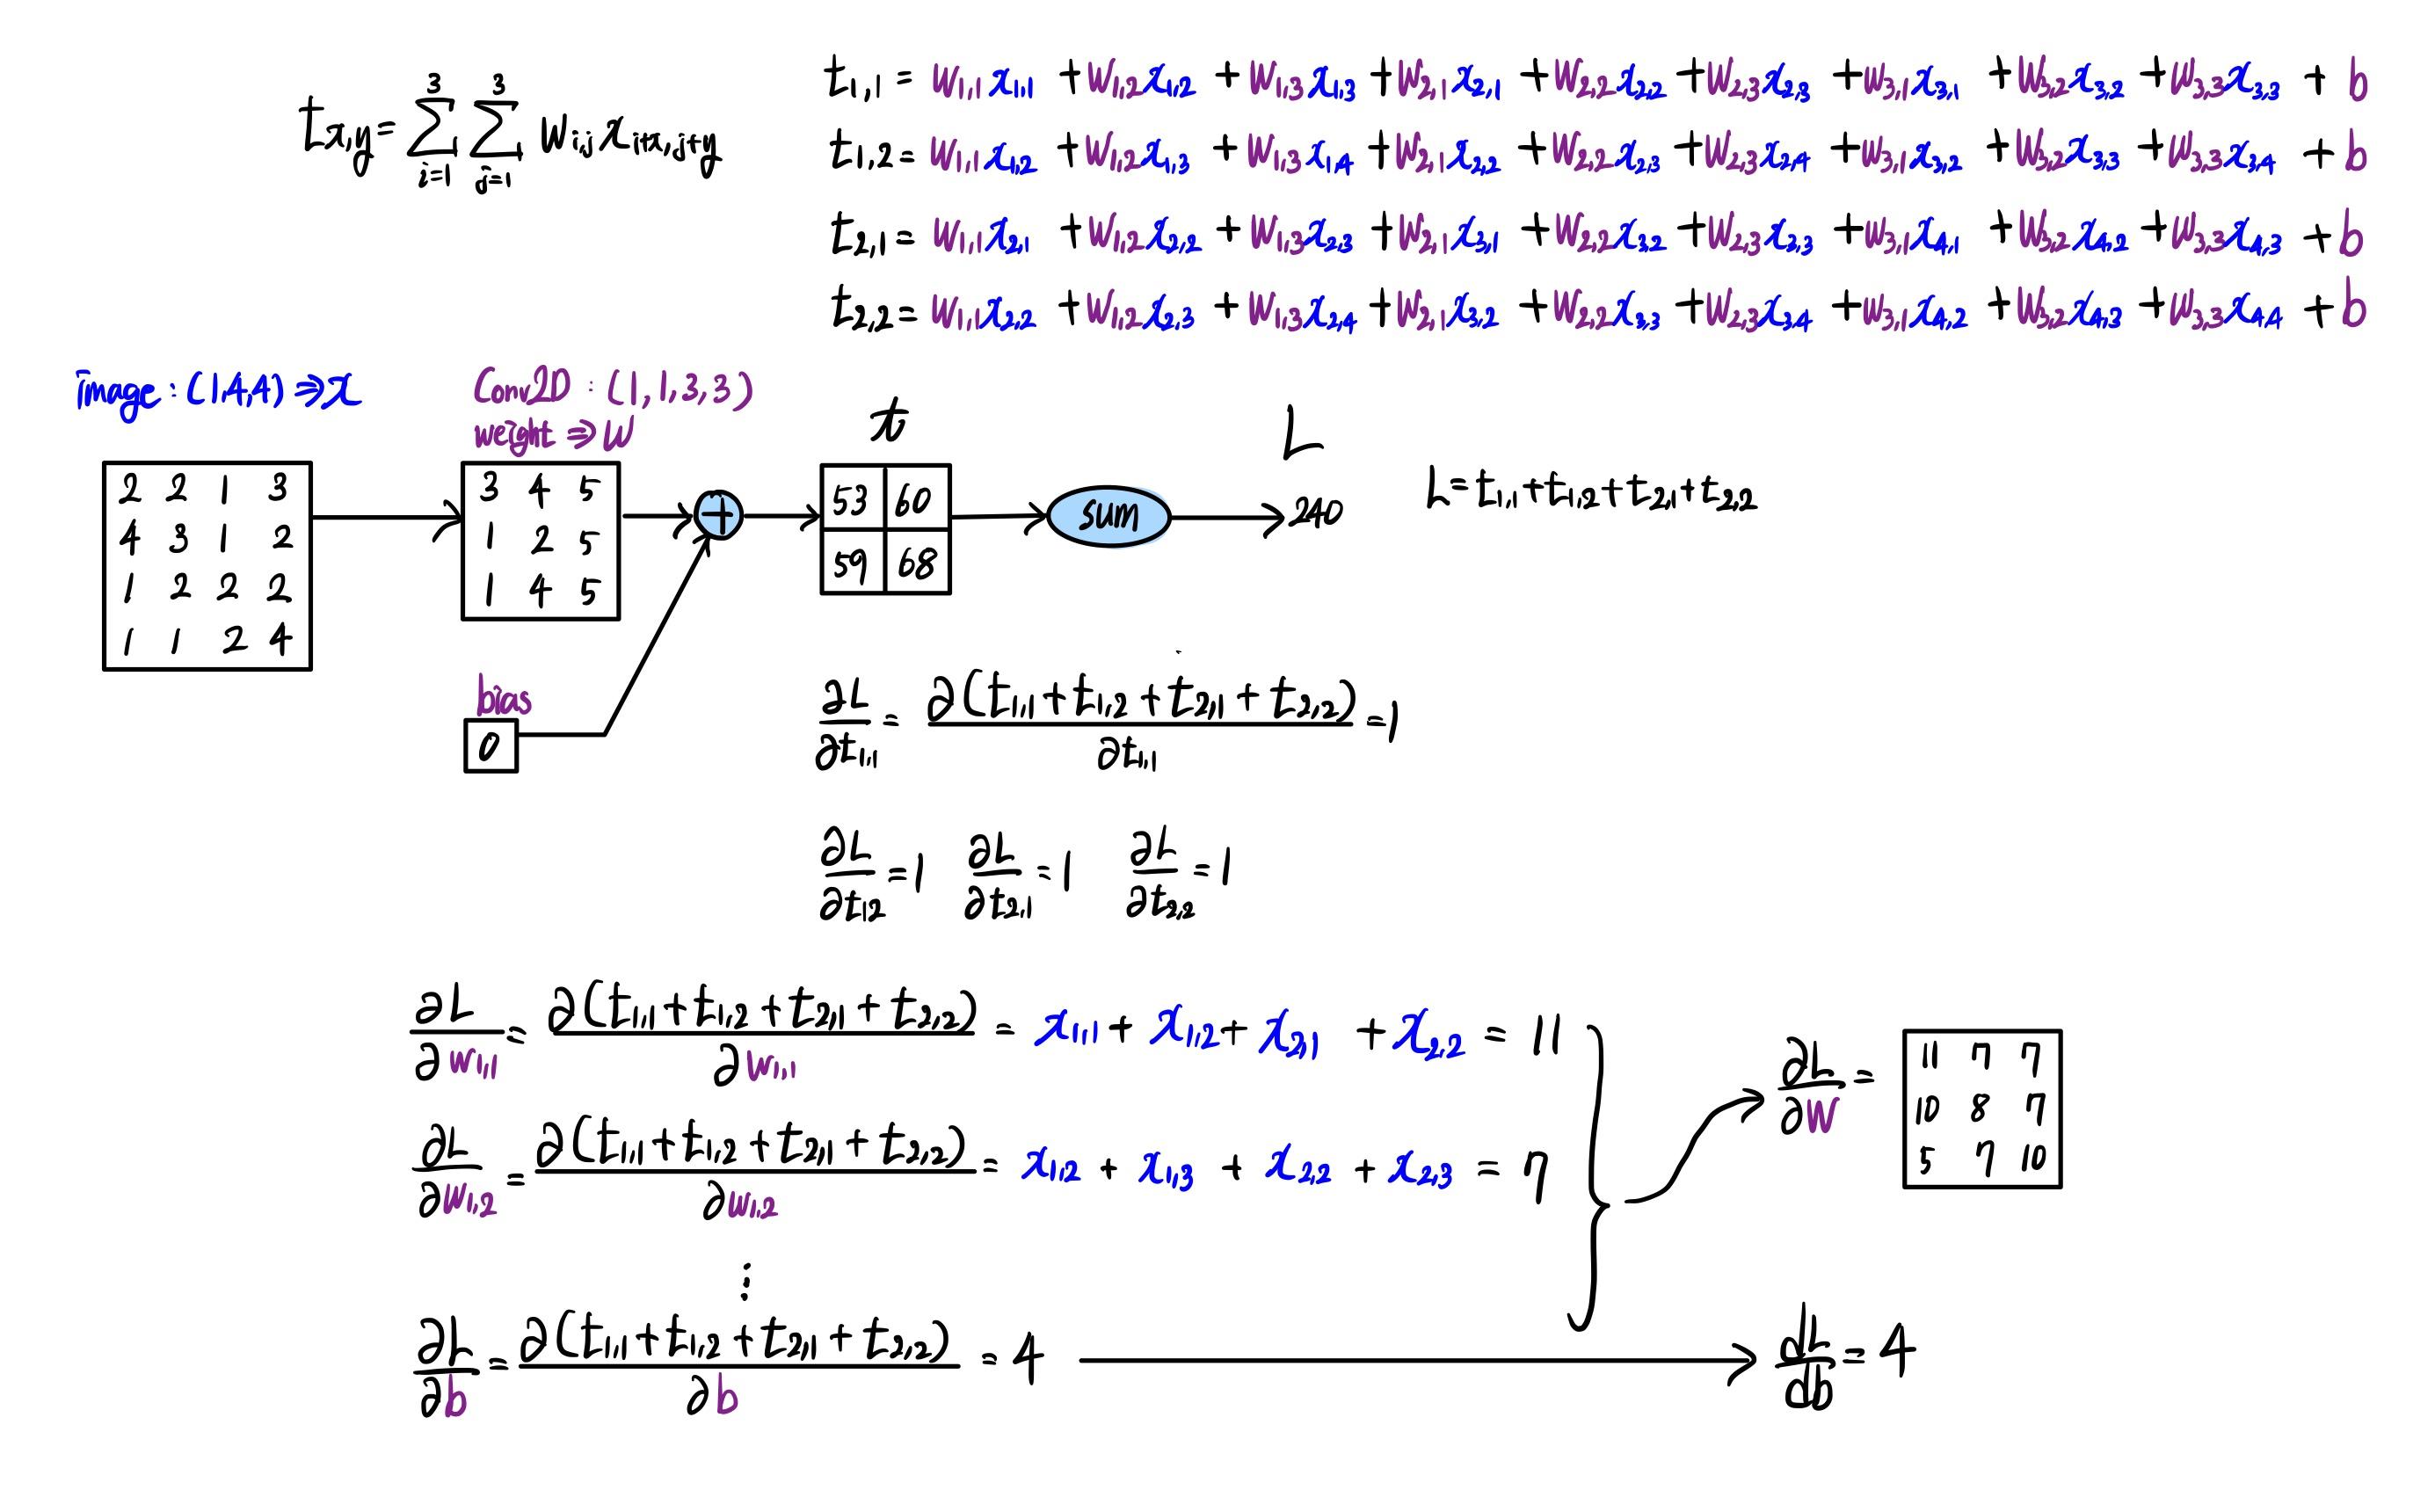 t_{x,y} = \sum_{i=1}^{3} \sum_{j=1}^{3} w_{i,j} x_{i+x,j+y}
t_{1,1} = w_{1,1}x_{1,1} + w_{1,2}x_{1,2} + w_{1,3}x_{1,3} + w_{2,1}x_{2,1} + w_{2,2}x_{2,2} + w_{2,3}x_{2,3} + w_{3,1}x_{3,1} + w_{3,2}x_{3,2} + w_{3,3}x_{3,3} + b
t_{1,2} = w_{1,1}x_{1,2} + w_{1,2}x_{1,3} + w_{1,3}x_{1,4} + w_{2,1}x_{2,2} + w_{2,2}x_{2,3} + w_{2,3}x_{2,4} + w_{3,1}x_{3,2} + w_{3,2}x_{3,3} + w_{3,3}x_{3,4} + b
t_{2,1} = w_{1,1}x_{2,1} + w_{1,2}x_{2,2} + w_{1,3}x_{2,3} + w_{2,1}x_{3,1} + w_{2,2}x_{3,2} + w_{2,3}x_{3,3} + w_{3,1}x_{4,1} + w_{3,2}x_{4,2} + w_{3,3}x_{4,3} + b
t_{2,2} = w_{1,1}x_{2,2} + w_{1,2}x_{2,3} + w_{1,3}x_{2,4} + w_{2,1}x_{3,2} + w_{2,2}x_{3,3} + w_{2,3}x_{3,4} + w_{3,1}x_{4,2} + w_{3,2}x_{4,3} + w_{3,3}x_{4,4} + b
image : (1,4,4) ⇒ x
2 2 1 3
4 3 1 2
1 2 2 2
1 1 2 4
Conv2D : (1,1,3,3)
weight ⇒ W
3 4 5
1 2 5
1 4 5
bias
0
+
t
53 60
59 68
sum
L
240
L = t_{1,1} + t_{1,2} + t_{2,1} + t_{2,2}
∂L/∂t_{1,1} = ∂(t_{1,1} + t_{1,2} + t_{2,1} + t_{2,2})/∂t_{1,1} = 1
∂L/∂t_{1,2} = 1 ∂L/∂t_{2,1} = 1 ∂L/∂t_{2,2} = 1
∂L/∂w_{1,1} = ∂(t_{1,1} + t_{1,2} + t_{2,1} + t_{2,2})/∂w_{1,1} = x_{1,1} + x_{1,2} + x_{2,1} + x_{2,2} = 11
∂L/∂w_{1,2} = ∂(t_{1,1} + t_{1,2} + t_{2,1} + t_{2,2})/∂w_{1,2} = x_{1,2} + x_{1,3} + x_{2,2} + x_{2,3} = 7
⋮
∂L/∂b = ∂(t_{1,1} + t_{1,2} + t_{2,1} + t_{2,2})/∂b = 4
∂L/∂W =
11 7 7
10 8 7
5 7 10
dL/db = 4